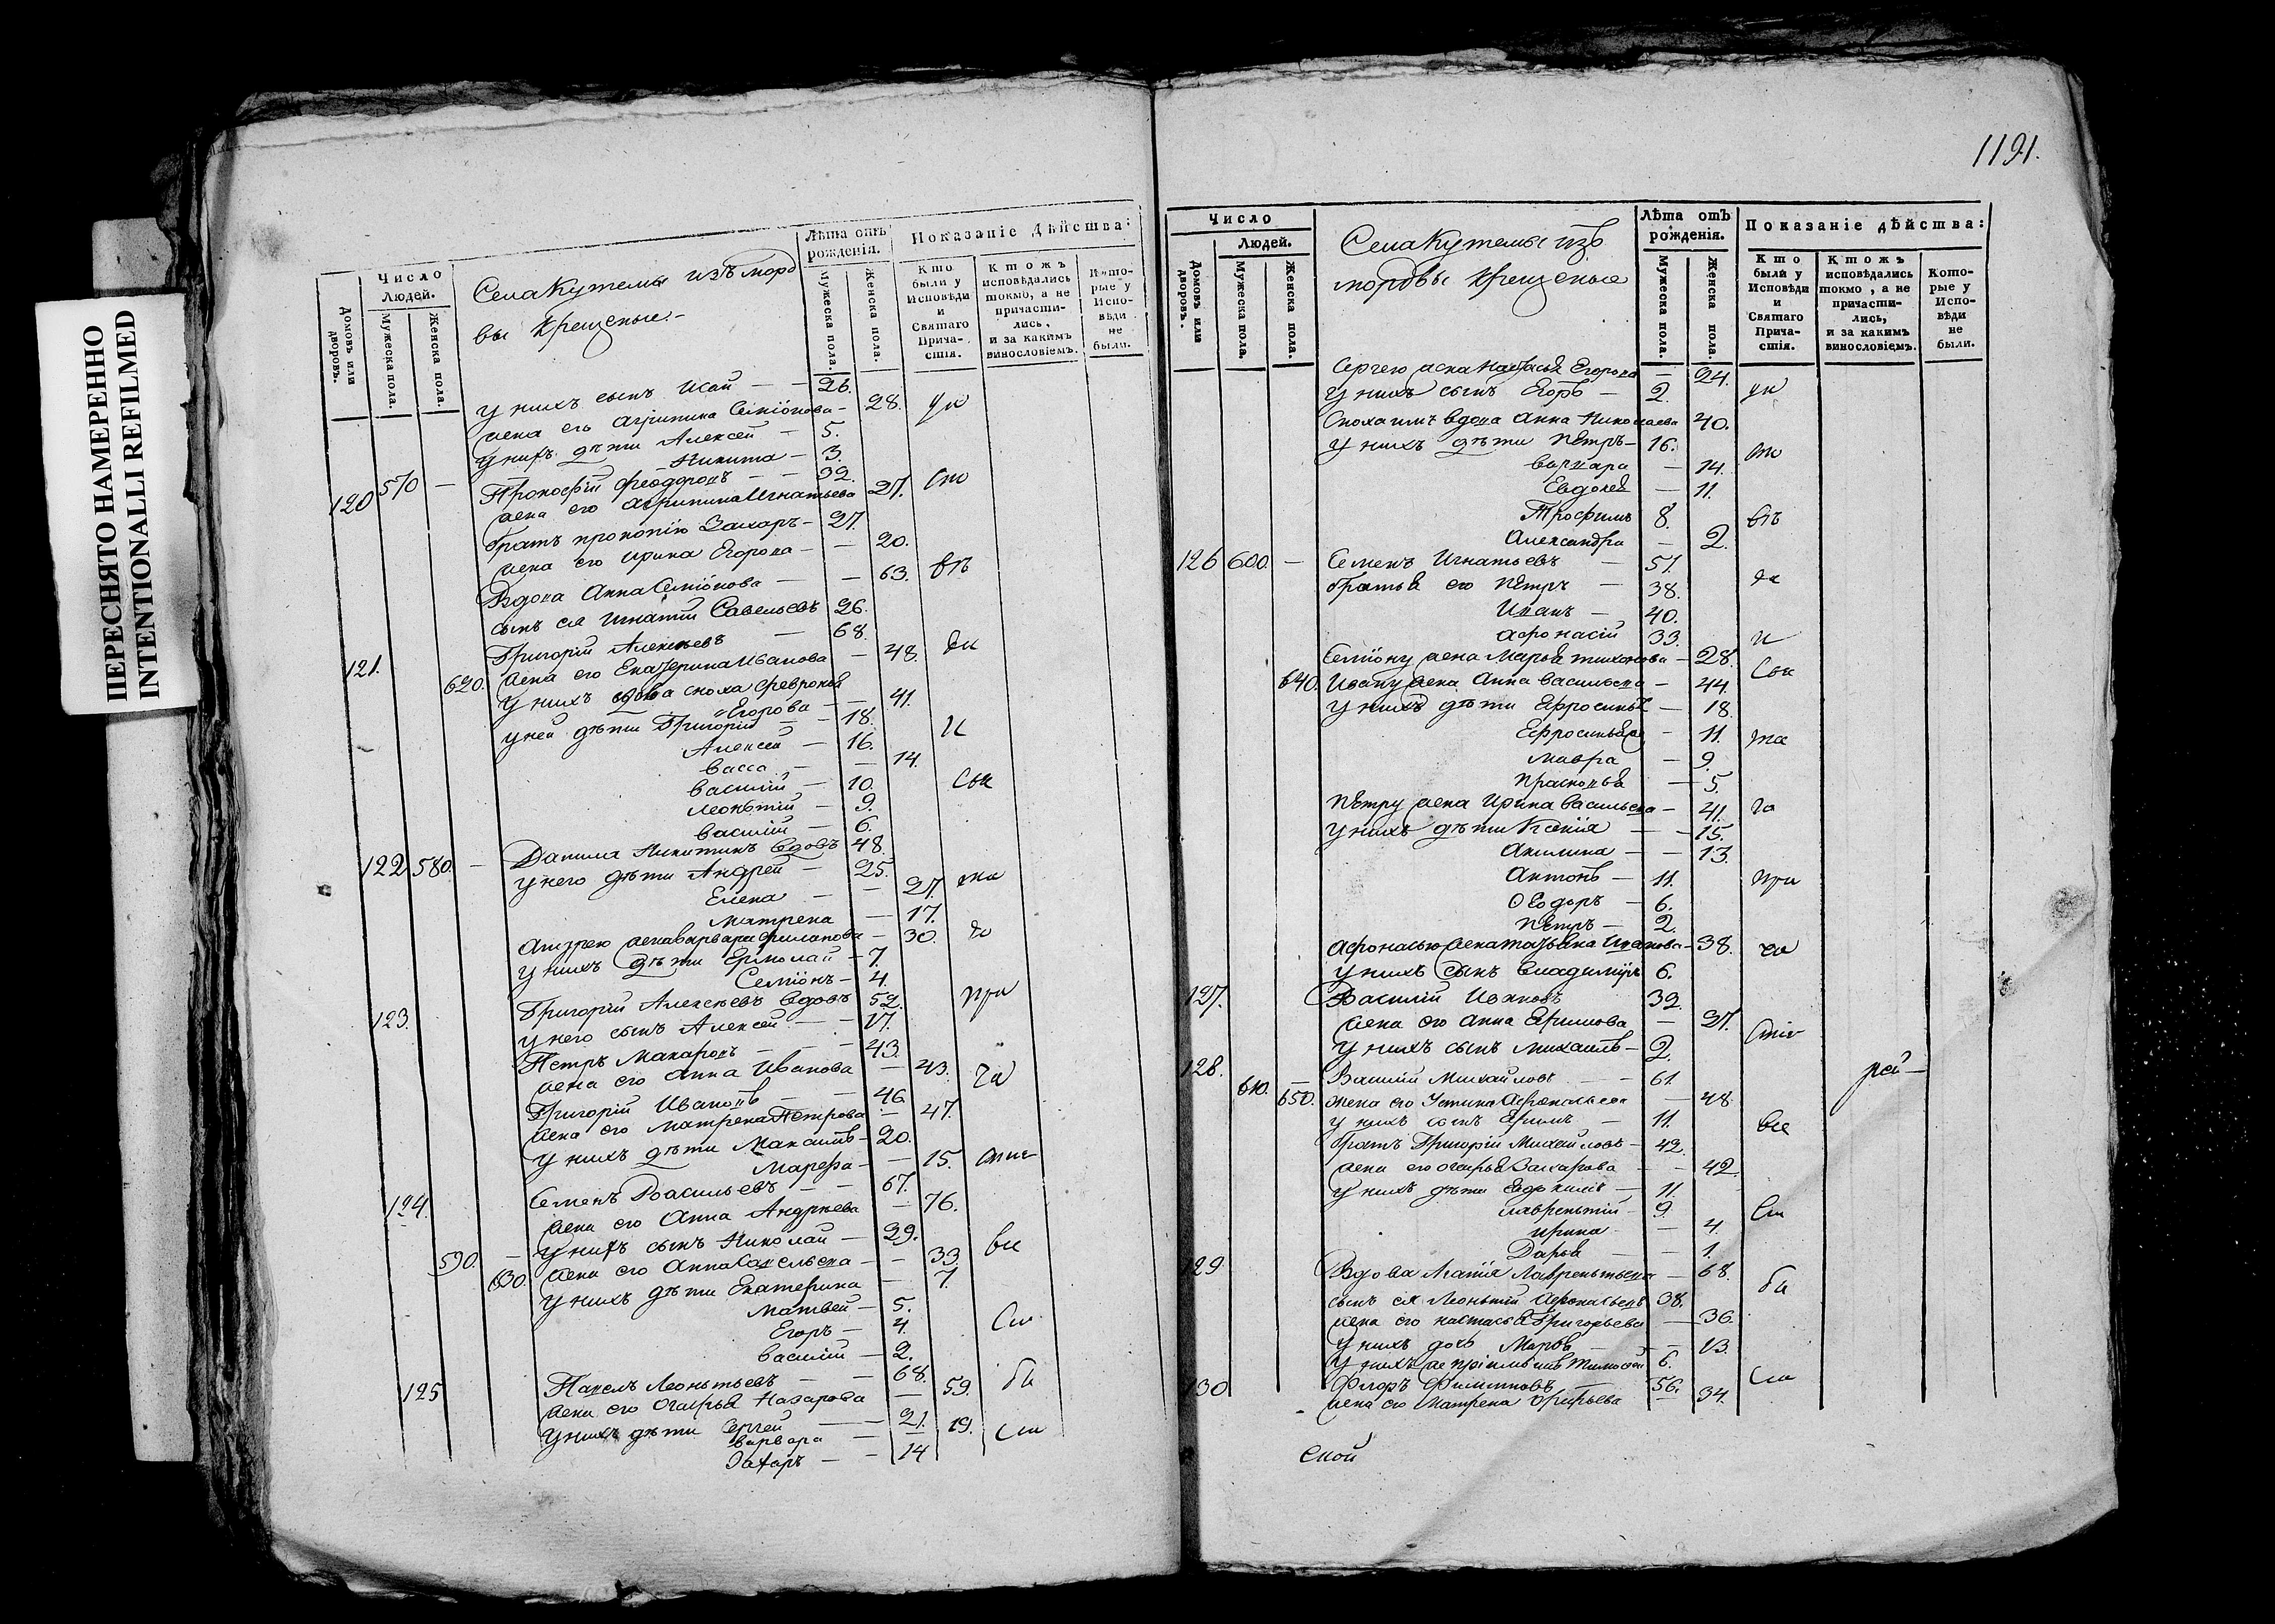 ПЕРЕСНЯТО НАМЕРЕННО
INTENTIONALLI REFILMED
Число
Людей.
Домовъ или дворовъ.
Мужеска пола.
Женска пола.
Села Кутемы изъ морд
вы крещеные.-
Лѣта отъ рожденія.
Мужеска пола.
Женска пола.
Показаніе дѣйства:
Кто были у Исповѣди и Святаго Прича-стія.
Ктожъ исповѣдались токмо, а не причасти-лись, и за какимъ винословіемъ.
Кото-рые у Испо-вѣди не были.
у нихъ сынъ Исай — — 26.
жена его Агрипина Семіонова — 28. ди
у нихъ дѣти Алексей — 5.
Никита — 3.
120 570 — Прокофій Феодоровъ — — 32.
жена его Агрипина Игнатьева 27.
братъ прокопію Захаръ — 27.
жена его Ирина Егорова — — 20.
Вдова Анна Семіонова — — 63. въ
сынъ ея Игнатій Савельевъ 26.
121. Григорій Алексеевъ — 68.
620. жена его Екатерина Иванова — 48.
у нихъ вдова сноха Февронья
Егорова — — 41.
у ней дѣти Григорій — — 18. и
Алексей — 16.
васса — — 14.
василій — 10. свя
леонтій — 9.
василій — 6.
122 580. — Данила Никитинъ вдовъ 48.
у него дѣти Андрей — 25.
Елена — — 27.
матрена — 17.
Андрею жена варвара филипова — 30. го
у нихъ дѣти Ермолай — 7.
Семіонъ — 4.
123. Григорій Алексеевъ вдовъ 52. при
у него сынъ Алексей — — 17.
Петръ Макаровъ — — 43.
жена его Анна Иванова — 43. ча
Григорій Ивановъ — — 46.
жена его матрена Петрова — 47.
у нихъ дѣти Максимъ — 20.
Марефа — — 15. стіе
124. Семенъ Васильевъ — — 67.
жена его Анна Андреева — 76.
590. — у нихъ сынъ Николай — 29.
630 жена его Анна Савельева — — 33. вс
у нихъ дѣти Екатерина — 7.
матвей — 5.
Егоръ — 4.
василій — 2.
125 Павелъ Леонтьевъ — — 68.
жена его Огафья Назарова — 59. бы
у нихъ дѣти Сергей — — 21.
варвара — — 19.
Захаръ — — 14
1191.
Число
Людей.
Домовъ или дворовъ.
Мужеска пола.
Женска пола.
Села Кутемы изъ
мордвы крещеные
Лѣта отъ рожденія.
Мужеска пола.
Женска пола.
Показаніе дѣйства:
Кто были у Исповѣди и Святаго Прича-стія.
Ктожъ исповѣдались токмо, а не причасти-лись, и за какимъ винословіемъ.
Кото-рые у Испо-вѣди не были.
Сергею жена Настасья Егорова — 24.
у нихъ сынъ Егоръ — 2.
Сноха имъ вдова Анна Николаева 40.
у нихъ дѣти Петръ — 16.
варвара — 14.
Евдокея — 11.
Трофимъ 8. въ
Александра — 2.
126 600. — Семенъ Игнатьевъ — 51.
братья его Петръ — 38.
Иванъ — 40.
Афонасій 33. и
Семіону жена Марья тихонова — 28.
640. Ивану жена Анна васильева — 44. свя
у нихъ дѣти Ефросинья — 18.
Ефросинья — 11. та
мавра — 9.
Прасковья — 5.
Петру жена Ирина васильева — 41. го
у нихъ дѣти Ксенія — — 15.
Акилина — — 13.
Антонъ — 11. при
Ѳеодоръ — 6.
Петръ — 2.
Афонасью жена татьяна Иванова — 38. ча
у нихъ сынъ владимиръ 6.
127. Василій Ивановъ 32.
жена его Анна Ефимова — 27. стіе
у нихъ сынъ михаилъ — 2.
128. Василій Михайловъ — — 61. рей —
610. 650. жена его Устина Афонасьева — 48.
у нихъ сынъ Ефимъ — 11. вс
братъ Григорій Михайловъ — 42.
жена его огафья Захарова — — 42.
у нихъ дѣти Евдокимъ — 11.
лаврентій — 9.
ирина — — 4.
Дарья — — 1.
129 Вдова Лаврентьева — 68. бы
сынъ ея Леонтій Афонасьевъ 38.
жена его настасья Григорьева — 36.
у нихъ дочь Марья — — 13.
у нихъ же пріимышъ тимофей 6.
130 Филипповъ — 56.
жена его матрена — 34.
ской